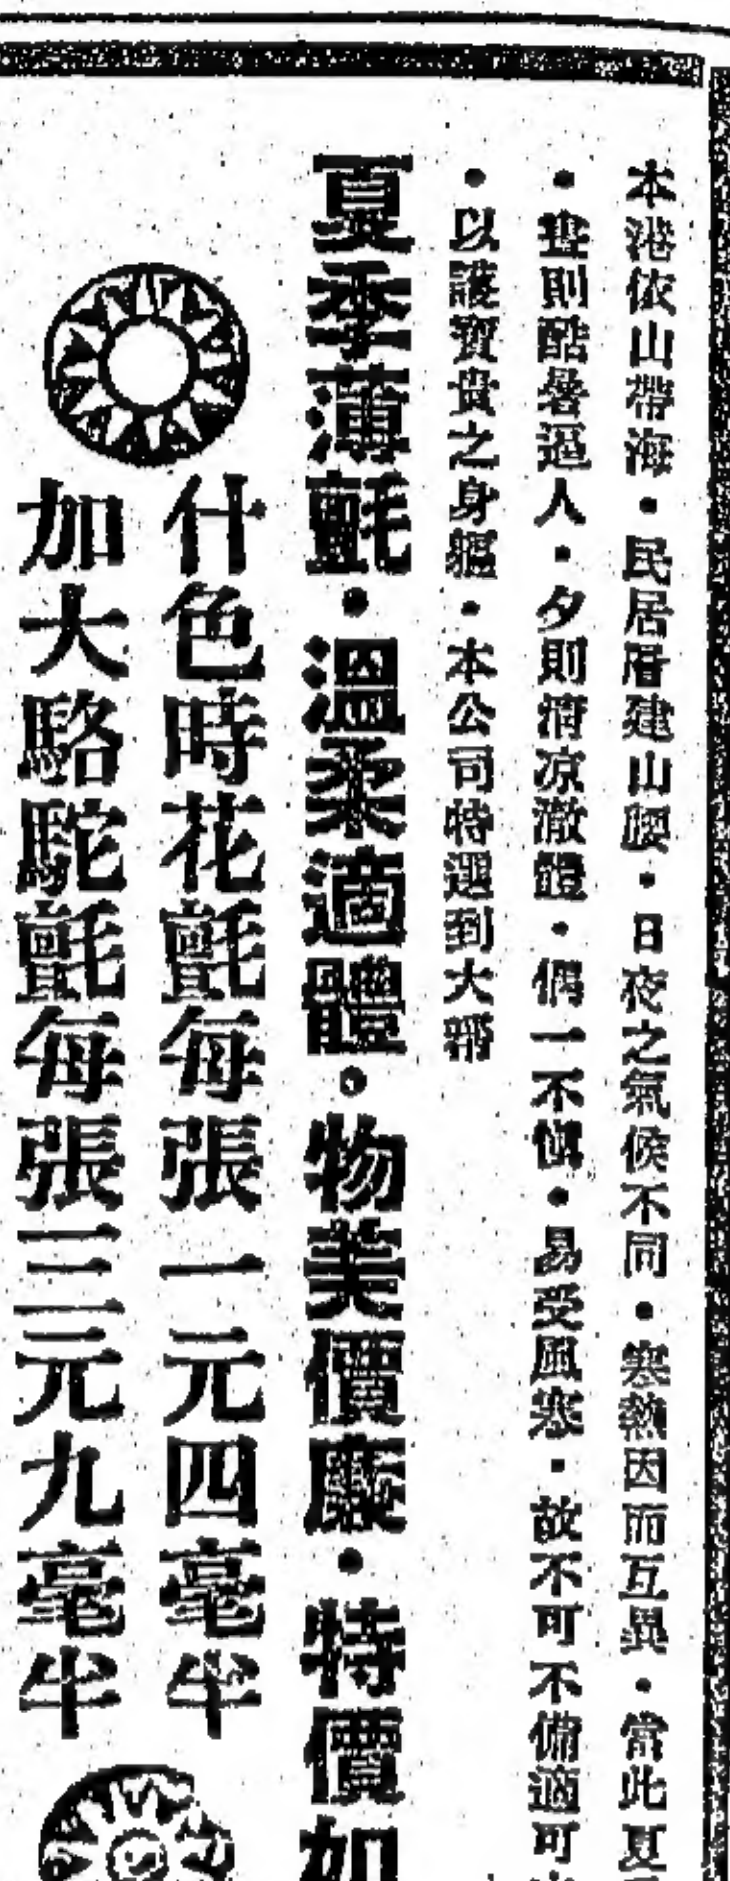 本港依山帶海・民居厝建山腰・日夜之氣候不同・寒熱因而互異・當此夏
・晝則酷暑逼人・夕則清凉澈體・偶一不慎・易受風寒・故不可不備適可
・以護寶貴之身軀・本公司特選到大幫
夏季薄氈・溫柔適體・物美價廉・特價如
什色時花氈每張一元四毫半
加大駱駝氈每張三元九毫半